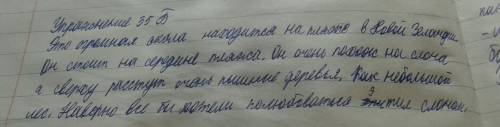 Упражнение 35 Б
Это огромная скала находится на пляже в Новой Зеландии.
Он стоит на середине пляжа. Он очень похож на слона
а сверху расстут очень пышные деревья. Как небольшой
лес. Наверно все бы хотели полюбоваться этим слоном.